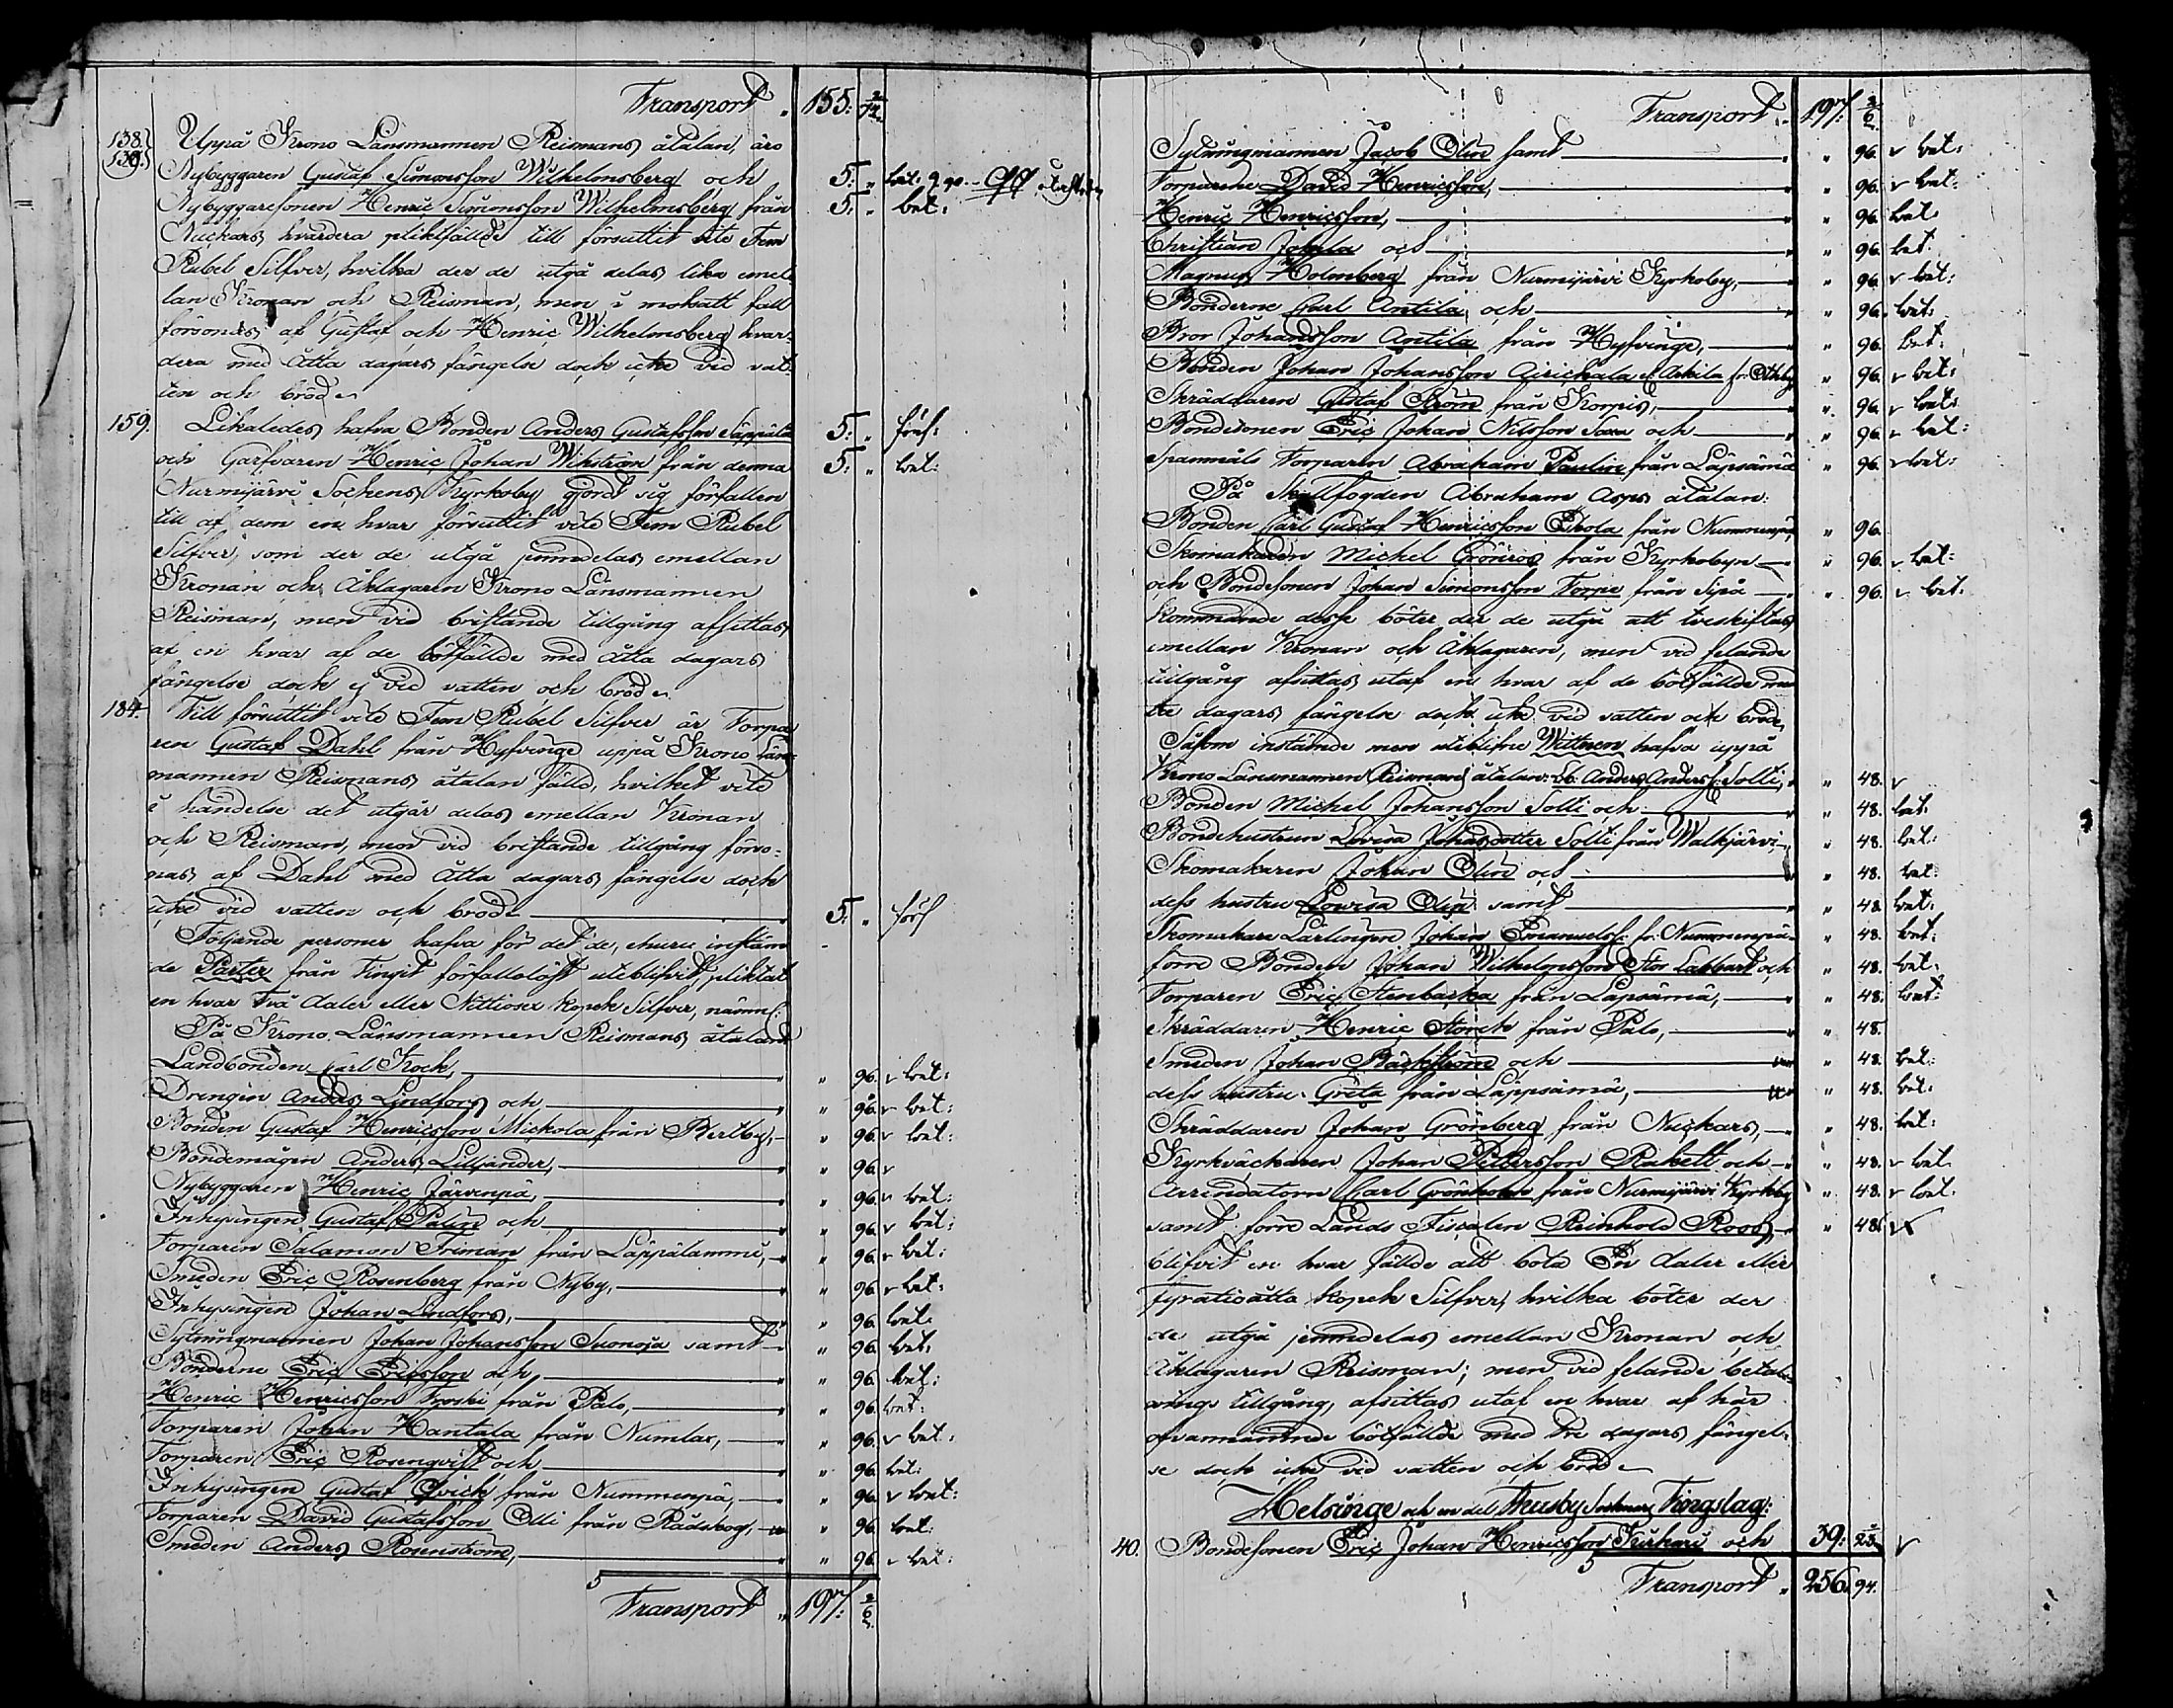 Transport „ 155: 2/7 72.
138.} Uppå Krono Länsmannen Reismans åtalan, äro
139.} Nybyggaren Gustaf Simonsson Wilhelmsberg och 5: „ bet:
Nybyggaresonen Henric Simonsson Wilhelmsberg från 5: „ bet:
Nuckars hvardera pliktfällde till försuttit vite Fem
Rubel Silfver, hvilka der de utgå delas lika emel-
lan Kronan och Reisman, men i motsatt fall
försonas af Gustaf och Henric Wilhelmsberg hvar-
dera med Åtta dagars fängelse dock icke vid vat-
ten och bröd.
159. Likaledes hafva Bonden Anders Gustafsson Säppälä 5: „
och Garfvaren Henric Johan Wikström från denna 5: „ bet:
Nurmijärvi Sockens Kyrkoby gjordt sig förfallen
till af dem en hvar försuttit vite Fem Rubel
Silfver, som der de utgå jemndelas emellan
Kronan och Åklagaren Krono Länsmannen
Reisman, men vid bristande tillgång afsittas
af en hvar af de bötfällde med Åtta dagars
fängelse dock ej vid vatten och bröd.
184. Till försuttit vite Fem Rubel Silfver är Torpa-
ren Gustaf Dahl från Hyfvinge uppå Krono Läns-
mannen Reismans åtalan fälld, hvilket vite
i händelse det utgår delas emellan Kronan
och Reisman, men vid bristande tillgång förso-
nas af Dahl med Åtta dagars fängelse dock
icke vid vatten och bröd 5: „
Följande personer hafva för det de, ehuru instäm-
de Parter från Tinget förfallolöst uteblifvit, pliktat
en hvar Två daler eller Nittiosex kopek Silfver, nämnl:
På Krono Länsmannen Reismans åtalan
Landbonden Carl Kock, „ 96. v bet:
Drengen Anders Lindfors och „ 96. v bet:
Bonden Gustaf Henricsson Mickola från Pertby, „ 96. v bet:
Bondemågen Anders Lilljander, „ 96. v
Nybyggaren Henric Järvenpä, „ 96. v bet:
Inhysingen Gustaf Palin och „ 96. v bet:
Torparen Salamon Friman från Läppälammi, „ 96. v bet:
Smeden Eric Rosenberg från Nyby, „ 96. v bet:
Inhysingen Johan Lindfors, „ 96. bet:
Sytningmannen Johan Johansson Suonoja samt „ 96. bet:
Bönderne Eric Ericsson och „ 96. bet:
Henric Henricsson Froski från Palo, „ 96. bet:
Torparen Johan Hantala från Numlax, „ 96. v bet:
Torparen Eric Rosenqvist och „ 96. bet:
Inhysingen Gustaf Qvick från Nummenpä, „ 96. v bet:
Torparen David Gustafsson Olli från Rådskog, „ 96. bet:
Smeden Anders Rosenström, „ 96. v bet:
Transport „ 197: 2/6.
Transport „ 197: 2/6.
Sytningmannen Jacob Olin samt „ 96. v bet:
Torparene David Henricsson, „ 96. v bet:
Henric Henricsson, „ 96. bet:
Christian Johala och „ 96. bet.
Magnus Holmberg från Nurmijärvi Kyrkoby, „ 96. v bet:
Bönderne Carl Antila och „ 96. bet:
Bror Johansson Antila från Hyfvinge, „ 96. bet:
Bonden Johan Johansson Airickala Arkila fr: Othby „ 96. v bet:
Skräddaren Gustaf Ström från Korpis, „ 96. v bet:
Bondesonen Eric Johan Nilsson Saxa och „ 96. v bet:
Spannmåls Torparen Abraham Paulin från Läpsämä „ 96. v bet:
På Skallfogden Abraham Asps åtalan:
Bonden Carl Gustaf Henricsson Erola från Nummenpä, „ 96.
Skomakaren Michel Grönros från Kyrkobyn „ 96. v bet:
och Bondesonen Johan Simonsson Torpe från Sipå „ 96. v bet:
Kommande desse böter der de utgå att tveskiftas
emellan Kronan och Åklagaren, men vid felande
tillgång afsittas utaf en hvar af de bötfällde med
tre dagars fängelse dock icke vid vatten och bröd,
Såsom instämde men uteblifne Wittnen hafva uppå
Krono Länsmannen Reismans åtalan: Anders Anderss: Solti, „ 48. v
Bonden Michel Johansson Solti och „ 48. bet:
Bondehustrun Lovisa Johansdotter Solti från Walkjärvi, „ 48. bet:
Skomakaren Johan Olin och „ 48. bet:
dess hustru Lovisa Olin samt „ 48. bet:
Skomakare Lärlingen Johan Emanuelss: fr: Nummenpä „ 48. bet:
förre Bonden Johan Wilhelmsson Stor Labbart och „ 48. bet:
Torparen Eric Stenbacka från Läpsämä, „ 48. bet:
Skräddaren Henric Storck från Palo, „ 48.
Smeden Johan Bäckström och „ 48. bet:
dess hustru Greta från Läppsämä, „ 48. bet:
Skräddaren Johan Grönberg från Nuckars, „ 48. bet:
Kyrkväckaren Johan Pettersson Rakett och „ 48. v bet
Arrendatorn Carl Grönholm från Nurmijärvi Kyrkby „ 48. v bet.
samt förre Lands Fiscalen Reinhold Roos, „ 48.
blifvit en hvar fällde att böta En daler eller
Fyratioåtta kopek Silfver, hvilka böter der
de utgå jemndelas emellan Kronan och
Åklagaren Reisman; men vid felande betal-
nings tillgång, afsittas utaf en hvar af här
ofvannämnde bötfällde med Tre dagars fängel-
se dock icke vid vatten och bröd.
Helsinge och en del Thusby Socknars Tingslag:
40. Bondesonen Eric Johan Henricsson Kurkari och 39: v
Transport „ 256. 94.